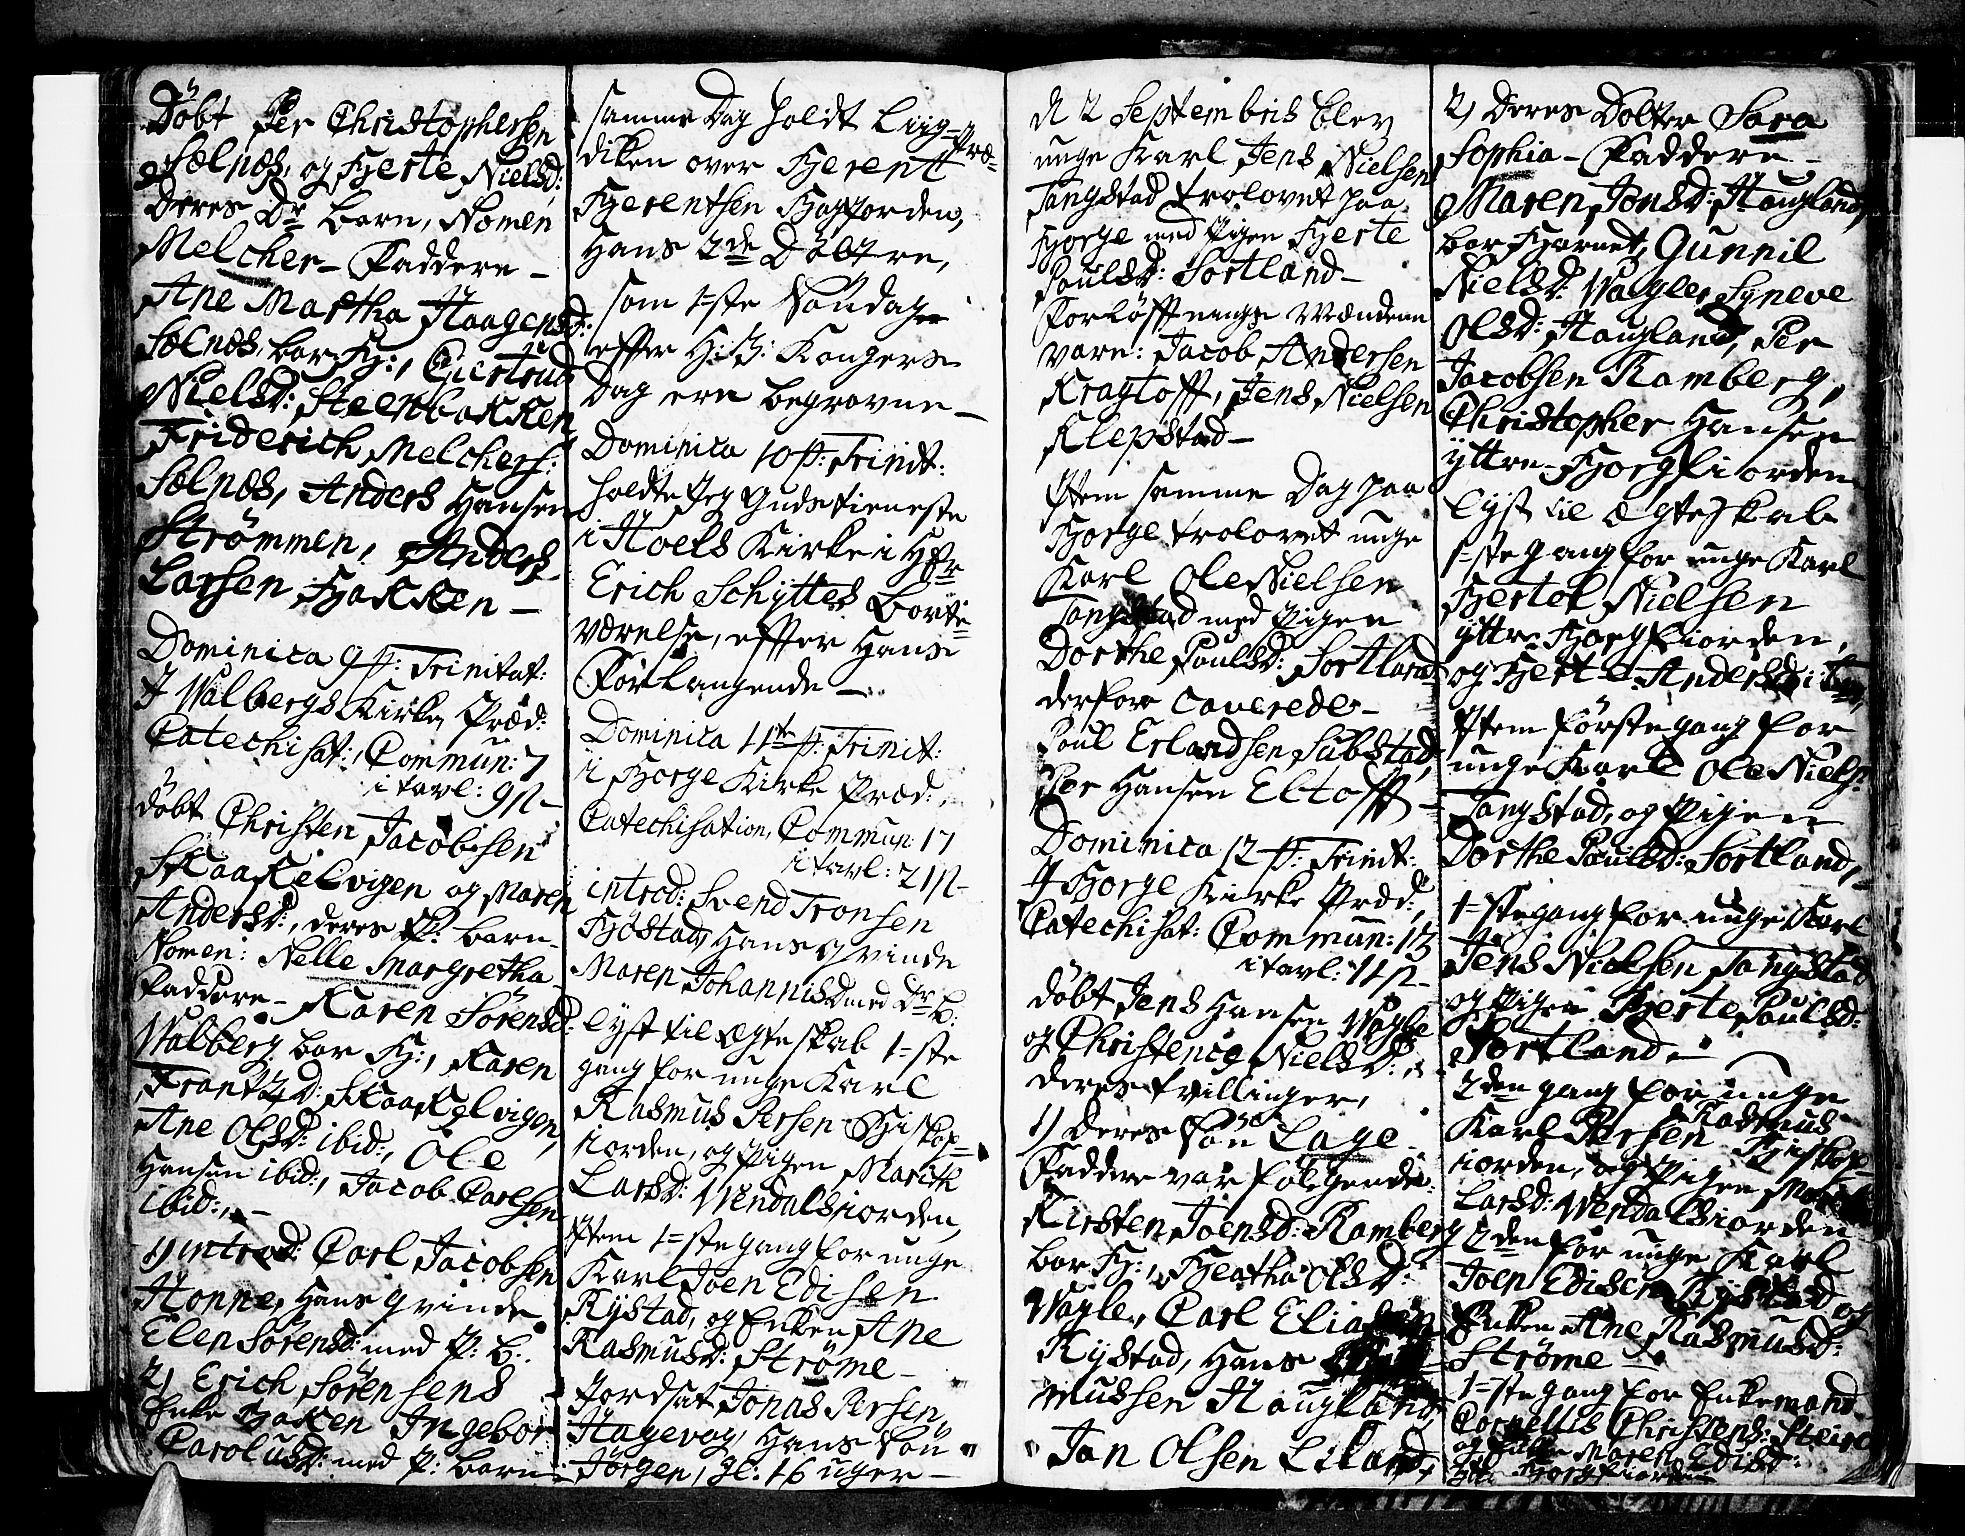 Döbt Per Christophersen
Solnes, og Hierte Nielsd:
Deres Dr barn, Nomen
Melcher - Faddere -
Ane Martha Haagensd:
Solnes, bar Hj:, Giertrud
Nielsd: Steenbakken
Friderich Melchers:
Solnes, Anders Hansen
Strömmen, Anders
Larsen, Bakken -
Dominica 9 p: Trinitat:
I Walbergs Kirke, Præd:
Catechisat:, Commun: 7
i tavl: 9 ß -
döbt Christen Jacobsen
Skaakelvigen og Maren
Andersd:, deres P. barn -
Nomen: Nelle Margretha
Faddere - Karen Sörensd:
Walberg bar Hj:, Karen
Frantzd: Skaakelvigen,
Ane Olsd: ibid:, Ole
Hansen ibid:, Jacob Carlsen
ibid: -
1) introd: Carl Jacobsen
Honne, Hans Qvinde
Elen Sörensd: med P: B:
2) Erich Sörensens
Enke Bakken Ingebor
Carolusd: med P: barn
samme Dag holdt Liig=Præ=
diken over Berentt
Berentsen Hagfiorden,
Hans 2de Döttre,
som 1=ste Söndag
efter H: 3: Kongers
Dag ere begravne -
Dominica 10 p: Trinit:
holdte Jeg Gudstieneste
i Hoels Kirke i Hr
Erich Schyttes Borte=
værelse, effter Hans
Forlangende -
Dominica 11te p: Trinit:
i Borge Kirke Præd:,
Catechisation, Commun: 17
i tavl: 21 ß -
introd: Svend Tronsen
Böstad, Hans Qvinde
Maren Johannisd med Dr B:
Lyst til Ægteskab 1=ste
gang for unge Karl
Rasmus Persen Biskop=
fiorden, og Pigen Marith
Larsd: Wendalsfiorden,
Item 1=ste gang for unge
Karl Joen Edisen
Rystad, og Enken Ane
Rasmusd: Ströme -
Jordsat Jonas Persen
Hagevog, Hans Sön
Jörgen, gl: 16 uger -
d 2 Septembris blev
unge Karl Jens Nielsen
Tangstad trolovet paa
Borge med Pigen Berte
Poulsd: Sortland -
Forlöfftnings Mændene
vare: Jacob Andersen
Kragtofft, Jens Nielsen
Klepstad -
Item samme Dag paa
Borge trolovet unge
Karl Ole Nielsen
Tangstad med Pigen
Dorthe Poulsd: Sortland
derfore Caverede -
Poul Erlandsen Substad,
Per Hansen Eltofft -
Dominica 12 p: Trinit:
I Borge Kirke Præd:,
Catechisat: Commun: 13
i tavl: 11 ß -
döbt Jens Hansen Wagle
og Christence Nielsd:,
deres tvillinger,
1) deres Sön Lage -
Faddere var fölgende:
Kirsten Joensd: Ramberg
bar Hj:, Beatha Olsd:
Wagle, Carl Elia
Rystad, Hans
mussen Haugland,
Jan Olsen Liland,
2) Deres Dotter Sara
Sophia - Faddere -
Maren Jonsd: Haugland,
bar Barnet, Gunnil
Nielsd: Wagle, Syneve
Olsd: Haugland, Per
Jacobsen Ramberg,
Christopher Hansen
yttre Borgfiorden
Lyst til Ægteskab
1=ste gang for unge Karl
Bertel Nielsen
yttre Borgfiorden,
og Bette Andersd: ibm
Item förste gang for
unge Karl Ole Niels:
Tangstad, og Pigen
Dorthe Poulsd: Sortland,
1=ste gang for unge Karl
Jens Nielsen Tangstad
og Pigen Berte Poulsd:
Sortland -
2den gang for unge
Karl Rasmus
Persen Biskop=
fiorden, og Pigen Marith
Larsd: Wendalsfiorden
2den for unge Karl
Joen Edisen Rystad og
Enken Ane Rasmusd:
Ströme -
1=ste gang for Enkemand
Cornelius Christens: Steiro
og Maren Edisd:
yttre Borgfiorden